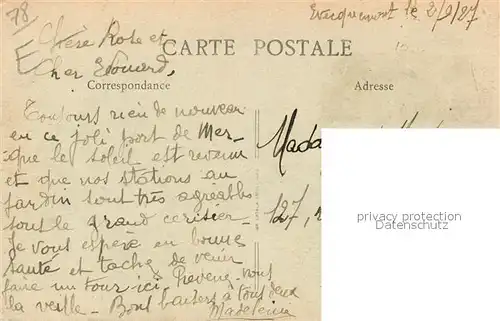 78
Evecquemont le 2/9/27
Chère Rose et
Cher Edouard,
CARTE POSTALE
Correspondance
Adresse
Toujours rien de nouveau
en ce joli port de Mer-
que le soleil est revenu
et que nos stations au
jardin sont très agréables
sous le grand cerisier-
Je vous espère en bonne
santé et tachez de venir
faire un tour ici. Prevenez-nous
la veille- Bons baisers à tous deux
Madeleine
Mada
127,
privacy protection
Datenschutz